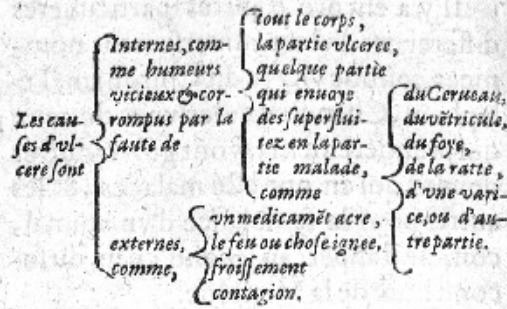 Les cau-
ses d'vl-
cere sont
Internes, com-
me humeurs
vicieux & cor-
rompus par la
faute de
tout le corps,
la partie vlceree,
quelque partie
qui enuoye
des superflui-
tez en la par-
tie malade,
comme
du Cerueau,
du vẽtricule,
du foye,
de la ratte,
d'vne vari-
ce, ou d'au-
tre partie.
externes,
comme,
vn medicamẽt acre,
le feu ou chose ignee,
froissement
contagion.